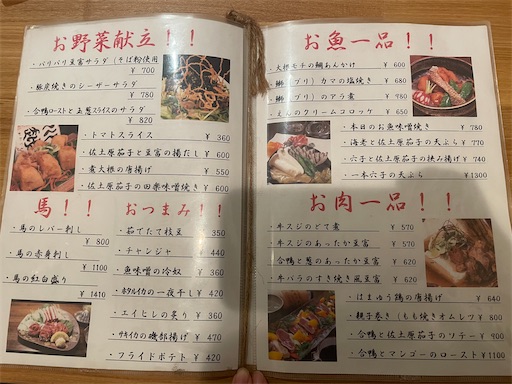 お野菜献立！！
・パリパリ豆富サラダ（そば粉使用
¥ 700
・豚炭焼きのシーザーサラダ
¥ 780
・合鴨ローストと玉葱スライスのサラダ
¥ 820
・トマトスライス ¥ 360
・佐土原茄子と豆富の揚だし ¥ 600
・煮大根の唐揚げ ¥ 550
・佐土原茄子の田楽味噌焼き ¥ 600
馬！！
・馬のレバー刺し
¥ 800
・馬の赤身刺し
¥ 1100
・馬の紅白盛り
¥ 1410
おつまみ！！
・茹でたて枝豆 350
・チャンジャ ¥ 440
・魚味噌の冷奴 ¥ 360
・ホタルイカの一夜干し ¥ 420
・エイヒレの炙り ¥ 360
・サキイカの磯部揚げ ¥ 470
・フライドポテト ¥ 420
お魚一品！！
・大根モチの鯛あんかけ ¥ 600
（ブリ）カマの塩焼き ¥ 680
ブリ）のアラ煮 ¥ 980
・えんのクリームコロッケ ¥ 650
・本日のお魚味噌焼き ¥ 780
・海老と佐土原茄子の天ぷら ¥ 770
・穴子と佐土原茄子の挟み揚げ ¥ 740
・一本穴子の天ぷら ¥1300
お肉一品！！
・牛スジのどて煮 ¥ 570
・牛スジのあったか豆富 ¥ 570
・合鴨と葱のあったか豆富 ¥ 620
・牛バラのすき焼き風豆富 ¥ 620
・はまゆう鶏の唐揚げ ¥ 640
・親子巻き（もも焼きオムレツ ¥ 800
・合鴨と佐土原茄子のソテー ¥ 900
・合鴨とマンゴーのロースト ¥1100